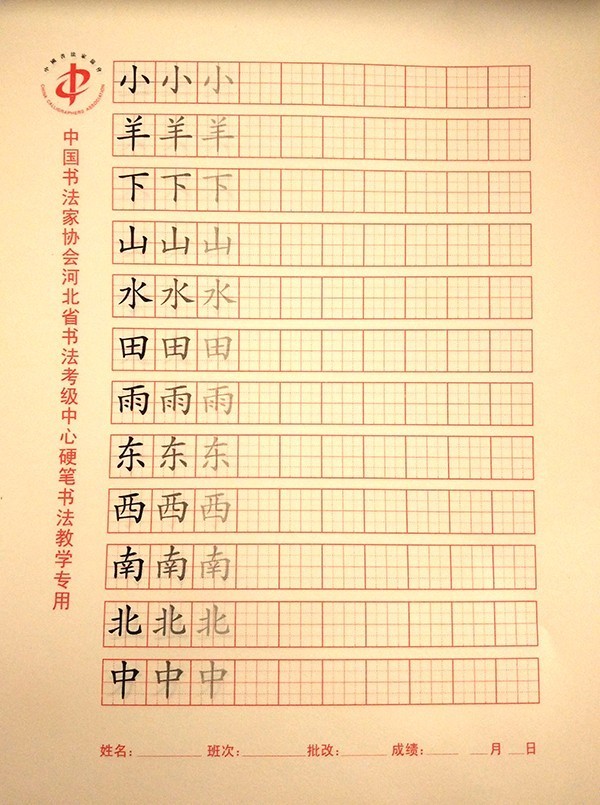 中国书法家协会
CHINA CALLIGRAPHERS ASSOCIATION
中国书法家协会河北省书法考级中心硬笔书法教学专用
小小小
羊羊羊
下下下
山山山
水水水
田田田
雨雨雨
东东东
西西西
南南南
北北北
中中中
姓名:________ 班次:________ 批改:______ 成绩:____ __月__日